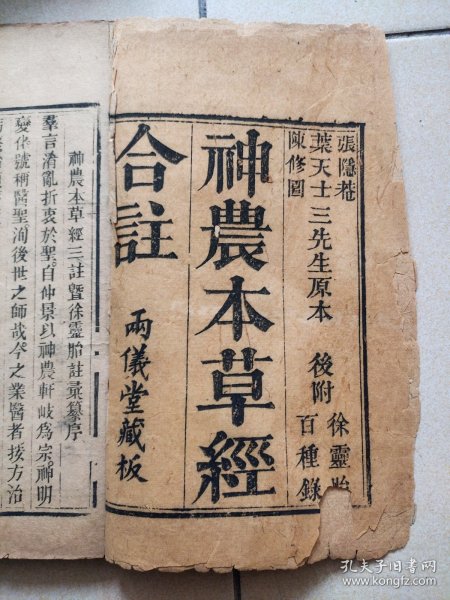 張隱菴
葉天士三先生原本 後附
陳修園
徐靈胎
百種錄
神農本草經
合註
兩儀堂藏板
神農本草經三註暨徐靈胎註彙纂序
羣言淆亂折衷於聖自仲景以神農軒岐為宗神明
變化號稱醫聖洵後世之師哉今之業醫者接方治
孔夫子旧书网
www.kongfz.com